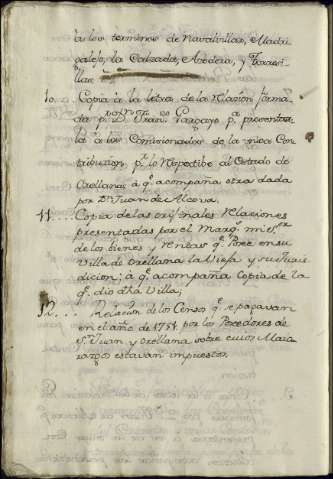 à los terminos de Navalvillar, Madri-
galejo, la Calzada, Acedera, y Torreci-
llas
10... Copia à la letra de la Relacion forma-
da por Dn. Franco. Gonz. Tamayo pa. presentar-
la à los Comisionados de la unica Con-
tribucion pr. lo respectibo al Estado de
Orellana à qe. acompaña otra dada
por Dn. Juan de
11... Copia de las originales relaciones
presentadas por el Marqs. mi sor.
de los bienes y rentas qe. Posee en su
Villa de Orellana la Vieja y su Juris-
dicion; à qe. acompaña Copia de la
qe. dio dha Villa;
12... Relacion de los Censos qe. se pagavan
en el año de 1751. por los Poseedores de
Sn. Juan y Orellana sobre cuios Maio-
razgos estavan impuestos